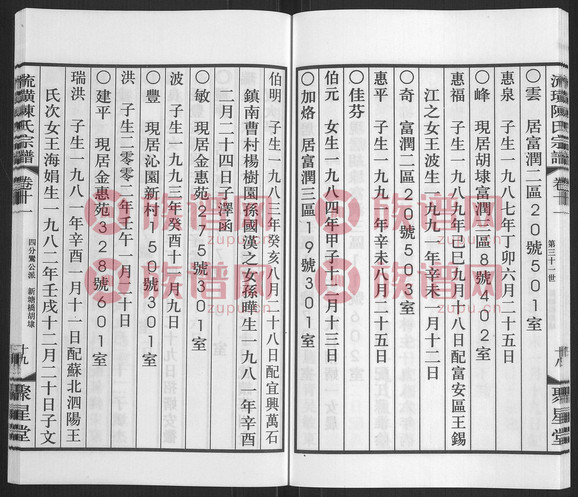 流璜陳氏宗譜
卷十
第三十一世
十八
聚星堂
○雲 居富潤二區20號501室
惠泉 子生一九八七年丁卯六月二十五日
○峰 現居胡埭富潤一區8號402室
惠福 子生一九八九年己巳九月十八日配富安區王錫
江之女王波生一九九一年辛未一月十二日
○奇 富潤二區50號503室
惠平 子生一九九一年辛未八月二十五日
○佳芬
伯元 女生一九八四年甲子十二月十三日
○加烙 居富潤三區19號301室
伯明 子生一九八三年癸亥八月十八日配宜興萬石
鎮南曹村楊樹園孫國漢之女孫曄生一九八一年辛酉
二月二十四日子澤函
○敏 現居金惠苑275號301室
波 子生一九九三年癸酉十二月九日
○豐 現居沁園新村150號301室
洪 子生二零零二年壬午一月三十日
○建平 現居金惠苑328號601室
瑞洪 子生一九八一年辛酉一月十一日配蘇北泗陽王
氏次女王海娟生一九八二年壬戌十二月二十日子文
流璜陳氏宗譜
卷十
四分鸞公派 新塘橋胡埭
十九
聚星堂
族谱网
zupu.cn
族谱网
zupu.cn
族谱网
zupu.cn
族谱网
zupu.cn